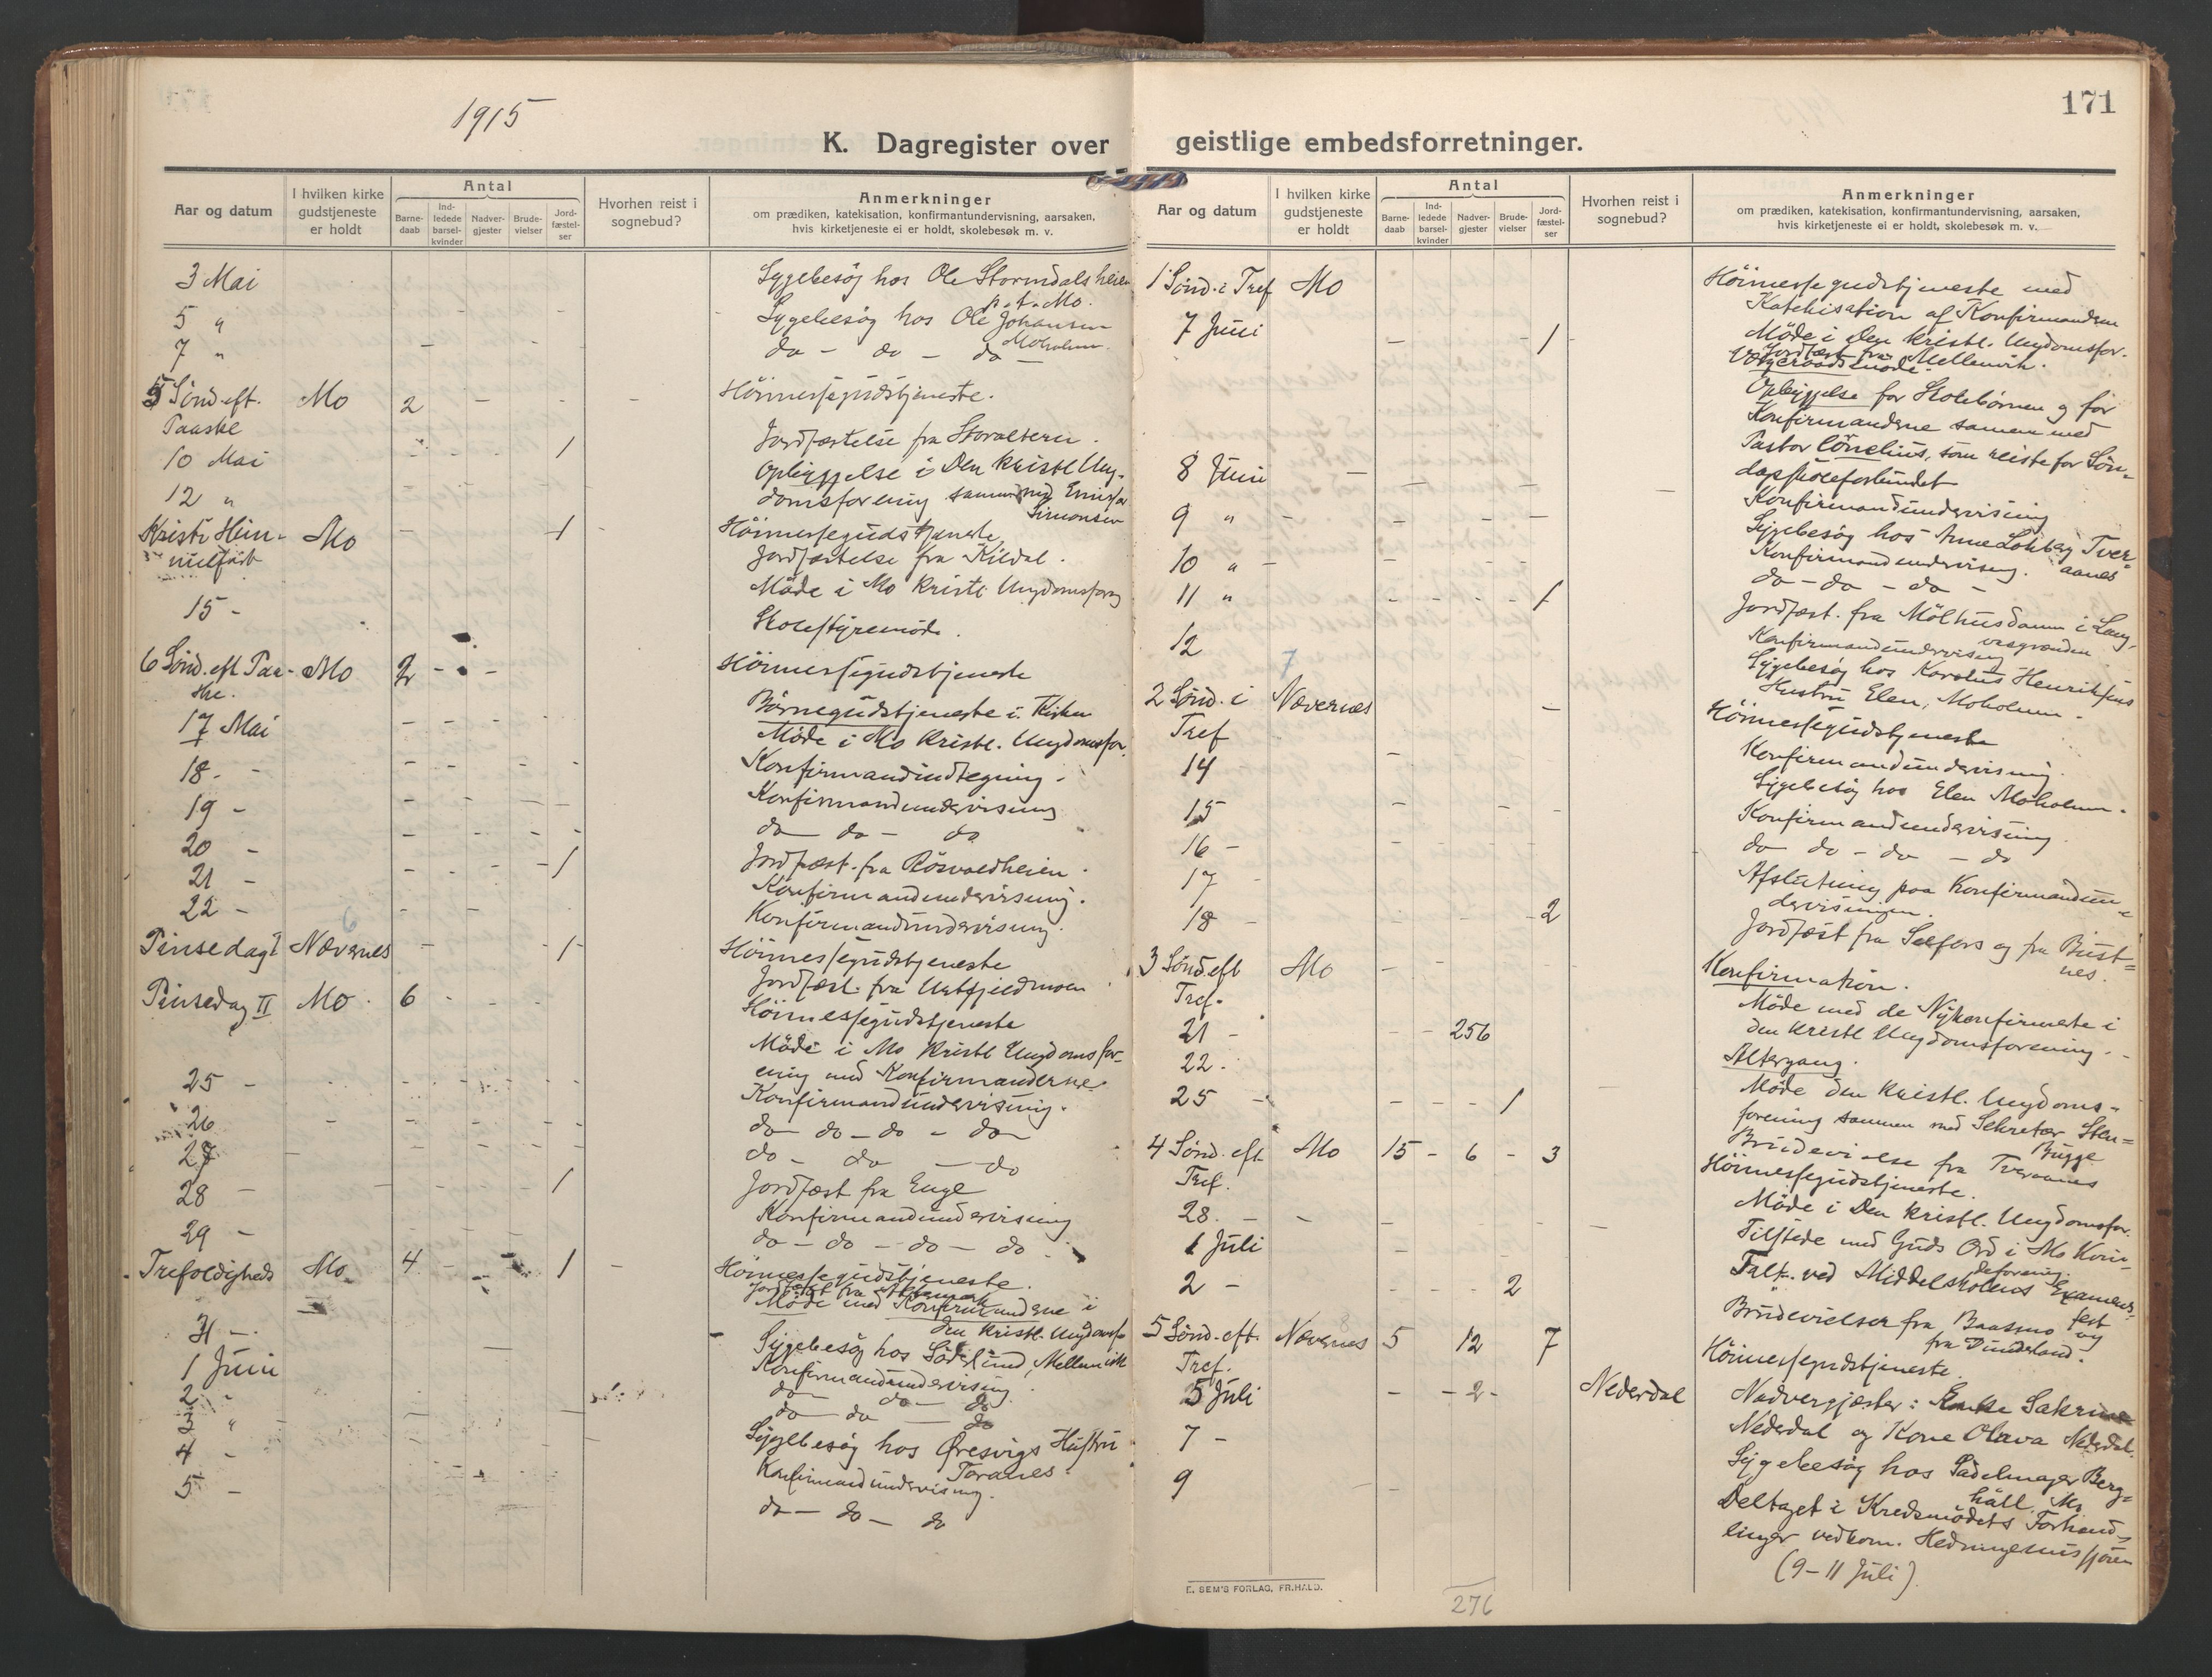 1915
K. Dagregister over
Aar og datum
I hvilken kirke gudstjeneste er holdt
Antal
Barne-daab
Ind-ledede barsel-kvinder
Nadver-gjester
Brude-vielser
Jord-fæstel-ser
Hvorhen reist i sognebud?
Anmerkninger
om prædiken, katekisation, konfirmantundervisning, aarsaken,
hvis kirketjeneste ei er holdt, skolebesøk m. v.
3 Mai Sygebesøg hos Ole Stormdalsheien
p.t. Mo.
5 " Sygebesøg hos Ole Johansen
Moholmen.
7 " do - do - do -
5 Sönd. eft. Mo 2 - - - Höimessegudstjeneste.
Paaske
10 Mai 1 Jordfæstelse fra Storalteren.
12 " Opbyggelse i Den kristl Ung-
domsforening sammen med Emissær
Simonsen
Kristi Him- Mo - 1 - Höimessegudstjeneste
melfart Jordfæstelse fra Kildal.
Möde i Mo kristl. Ungdomsforng
15 - Skolestyremöde.
6 Sönd. eft Paa- Mo 2 - - - Höimessegudstjeneste
ske.
17 Mai Börnegudstjeneste i Kirken
Möde i Mo kristl. Ungdomsfor.
18. - Konfirmandindtegning.
19 - Konfirmandundervisning
20 - do do - do
21 - 1 Jordfæst. fra Rösvoldheien.
22 - Konfirmandundervisning.
Konfirmandundervisning.
6
Pinsedag I Nævernes - 1 - Höimessegudstjeneste
Jordfæst. fra
Pinsedag II Mo. 6 - - - Höimessegudstjeneste
Möde i Mo kristl Ungdomsfor-
ening med Konfirmanderne.
25 - Konfirmandundervisning.
26 do do - do - do
27 do - do - do
28 - 1 Jordfæst fra Enge
Konfirmandundervisning
29 - do - do - do - do.
Trefoldigheds Mo 4 - 1 - Höimessegudstjeneste.
Jordfæst fra
Möde med Konfirmanderne i
den kristl. Ungdomsfor
31 -. Sygebesøg hos Söderlund, Mellemvik
1 Juni Konfirmandundervisning.
2 " do - do - do
3 " do - do - do
4 - Sygebesøg hos Øresvigs Hustru
Toranes.
5 - Konfirmandundervisning.
do - do - do
171
geistlige embedsforretninger.
Aar og datum
I hvilken kirke gudstjeneste er holdt
Antal
Barne-daab
Ind-ledede barsel-kvinder
Nadver-gjester
Brude-vielser
Jord-fæstel-ser
Hvorhen reist i sognebud?
Anmerkninger
om prædiken, katekisation, konfirmantundervisning, aarsaken,
hvis kirketjeneste ei er holdt, skolebesøk m. v.
1 Sönd. i Tref Mo Höimessegudstjeneste med
Katekisation af Konfirmanderne
Möde i den kristl. Ungdomsfor.
7 Juni - - 1 Jordfæst fra Mellemvik.
Vergeraadsmöde.
Opbyggelse for Skolebörnene og for
Konfirmanderne sammen med
Pastor Cörnelius, som reiste for Sön-
dagsskoleforbundet
8 Juni Konfirmandundervisning
9 " Sygebesøg hos Anne Tver-
aanes
10 " Konfirmandundervisning.
do - do - do -
11 " 1 Jordfæst. fra Mölhusdamm i Lang-
vasgrænden
12 Konfirmandundervisning
Sygebesøg hos Karolus Henriksens
Hustru Elen, Moholmen.
7
2 Sönd. i Nævernes - Höimessegudstjeneste
Tref
14 Konfirmandundervisning.
15 Sygebesøg hos Elen Moholmen.
16 - Konfirmandundervisning
17 - do do - do - do
18 - 2 Afslutning paa Konfirmandun-
dervisningen.
Jordfæst fra Selfors og fra Büst-
nes.
3 Sönd. eft Mo Konfirmation.
Tref. Möde med de Nykonfirmerte i
den kristl Ungdomsforening.
21 - - - 256 Altergang.
22. Möde den kristl. Ungdoms-
forening sammen med Sekretær Sten-
Bugge
25 - - - - 1 Brudevielse fra Tveraanes
4 Sönd. eft Mo 15 - 6 - 3 Höimessegudstjeneste.
Tref. Möde i Den kristl. Ungdomsfor.
28. - - Tilstede med Guds Ord i Mo Kvin-
deforening.
1 Juli Talt. ved Middelskolens Examens-
fest
2 - 2 Brudevielser fra Baasmo og
fra Dunderland.
5 Sönd. eft. Nævernes 5 12 7 Höimessegudstjeneste.
Tref.
5 Juli - - 2 - Nederdal Nadvergjæster: Enke Sakrine
Nederdal og Kone Olava Nederdal.
7 - Sygebesøg hos Sadelmager Berg-
häll, Mo
9 Deltaget i Kredsmödets Forhand-
linger vedkom. Hedningemissjonen
(9-11 Juli).
E. SEM'S FORLAG, FR.HALD.
276